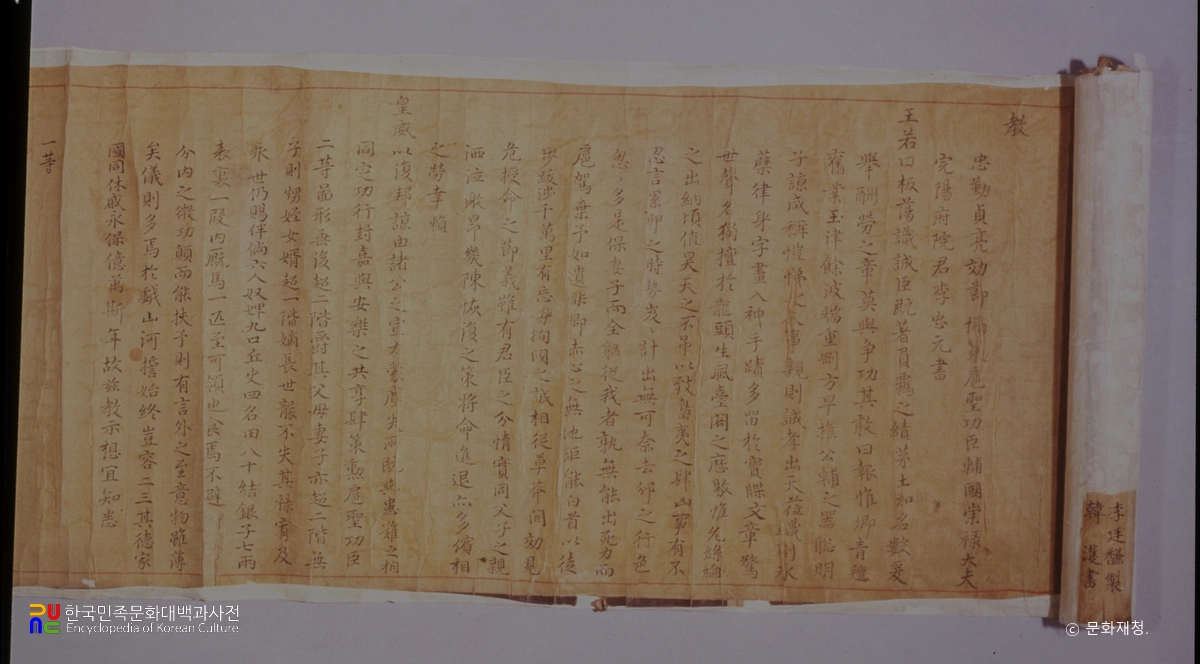 教
忠勤貞亮効節協策扈聖功臣輔國崇祿大夫
完陽府院君李忠元書
王若曰板蕩識誠臣旣著負羈之績茅土加名數爰
擧酬勞之章莫與爭功其敢曰報惟卿青氊
舊業玉津餘波端重剛方早推公輔之器聰明
子諒咸稱愷悌之人事親則誠孝出天莅職則氷
蘗律身字畫入神手蹟多留於寶牒文章驚
世聲名獨擅於龍頭生風臺閣之歷敭惟允絲綸
之出納頃値昊天之不弔以致島夷之肆凶事有不
忍言累卵之時勢岌岌計出無可奈去邠之行色
忽忽多是保妻子而全軀從我者孰無能出死力而
扈駕棄予如遺非卿赤心之無他詎能白首以徒
步跋涉千萬里有忘身徇國之誠相從草莽間効見
危授命之節義雖有君臣之分情實同父子之親
洒泣嵗昂幾陳恢復之策將命進退亦多儐相
之勞幸賴
皇威以復邦諒由諸公之宣力蒙塵先兩旣與患難之相
同定功行封嘉與安樂之共享肆策勳扈聖功臣
二等圖形垂後超二階爵其父母妻子亦超二階無
子則甥姪女婿超一階嫡長世襲不失其祿宥及
永世仍賜伴倘六人奴婢九口丘史四名田八十結銀子七兩
表裏一段內廐馬一匹至可領也食焉不避
分內之微功顚而能扶予則有言外之至意物雖薄
矣儀則多焉於戲山河擔始終豈容二三其德家
國同休戚永保億萬斯年故玆敎示想宜知悉
一等
李廷馦製
韓濩書
한국민족문화대백과사전
Encyclopedia of Korean Culture
© 문화재청.